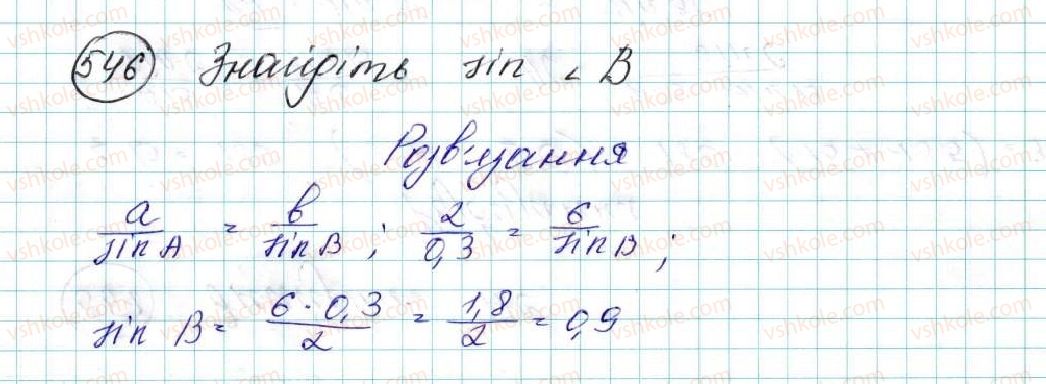 546 Знайдіть sin ∠ B
Розв'язання
a/sin A = b/sin B ; 2/0,3 = 6/sin B ;
sin B = 6·0,3/2 = 1,8/2 = 0,9